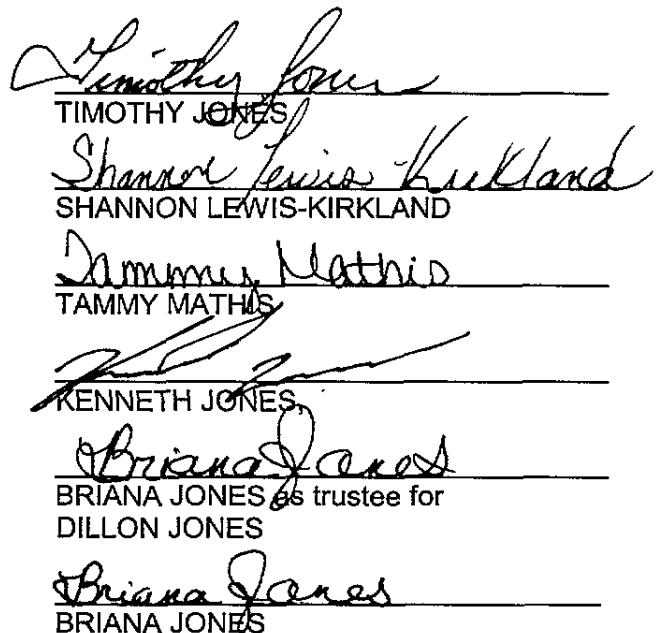 Timothy Jones
TIMOTHY JONES
Shannon Lewis-Kirkland
SHANNON LEWIS-KIRKLAND
Tammy Mathis
TAMMY MATHIS
KENNETH JONES,
Briana Jones
BRIANA JONES as trustee for
DILLON JONES
Briana Jones
BRIANA JONES